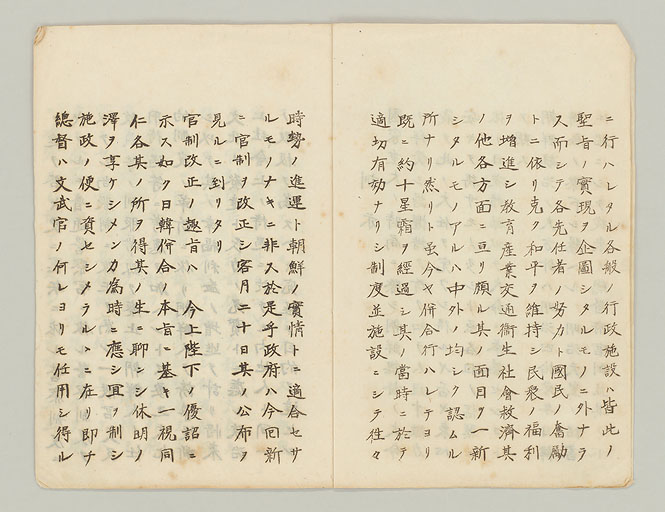 ニ行ハレタル各般ノ行政施設ハ皆此ノ
聖旨ノ實現ヲ企圖シタルモノニ外ナラ
ス而シテ各先任者ノ努力ト國民ノ奮勵
トニ依リ克ク和平ヲ維持シ民衆ノ福利
ヲ增進シ教育産業交通衞生社會救濟其
ノ他各方面ニ亘リ頗ル其ノ面目ヲ一新
シタルモノアルハ中外ノ均シク認ムル
所ナリ然リト虽今ヤ併合行ハレテヨリ
既ニ約十星霜ヲ經過シ其ノ當時ニ於テ
適切有効ナリシ制度並施設ニシテ往々
時勢ノ進運ト朝鮮ノ實情トニ適合セサ
ルモノナキニ非ス於是乎政府ハ今回新
ニ官制ヲ改正シ客月二十日其ノ公布ヲ
見ルニ到リタリ
官制改正ノ趣旨ハ 今上陛下ノ優詔ニ
示ス如ク日韓併合ノ本旨ニ基キ一視同
仁各其ノ所ヲ得其ノ生ニ聊ンシ休明ノ
澤ヲ享ケシメンカ爲時ニ應シ宜ヲ制シ
施政ノ便ニ資セシメラルヽニ在リ即チ
總督ハ文武官ノ何レヨリモ任用シ得ル